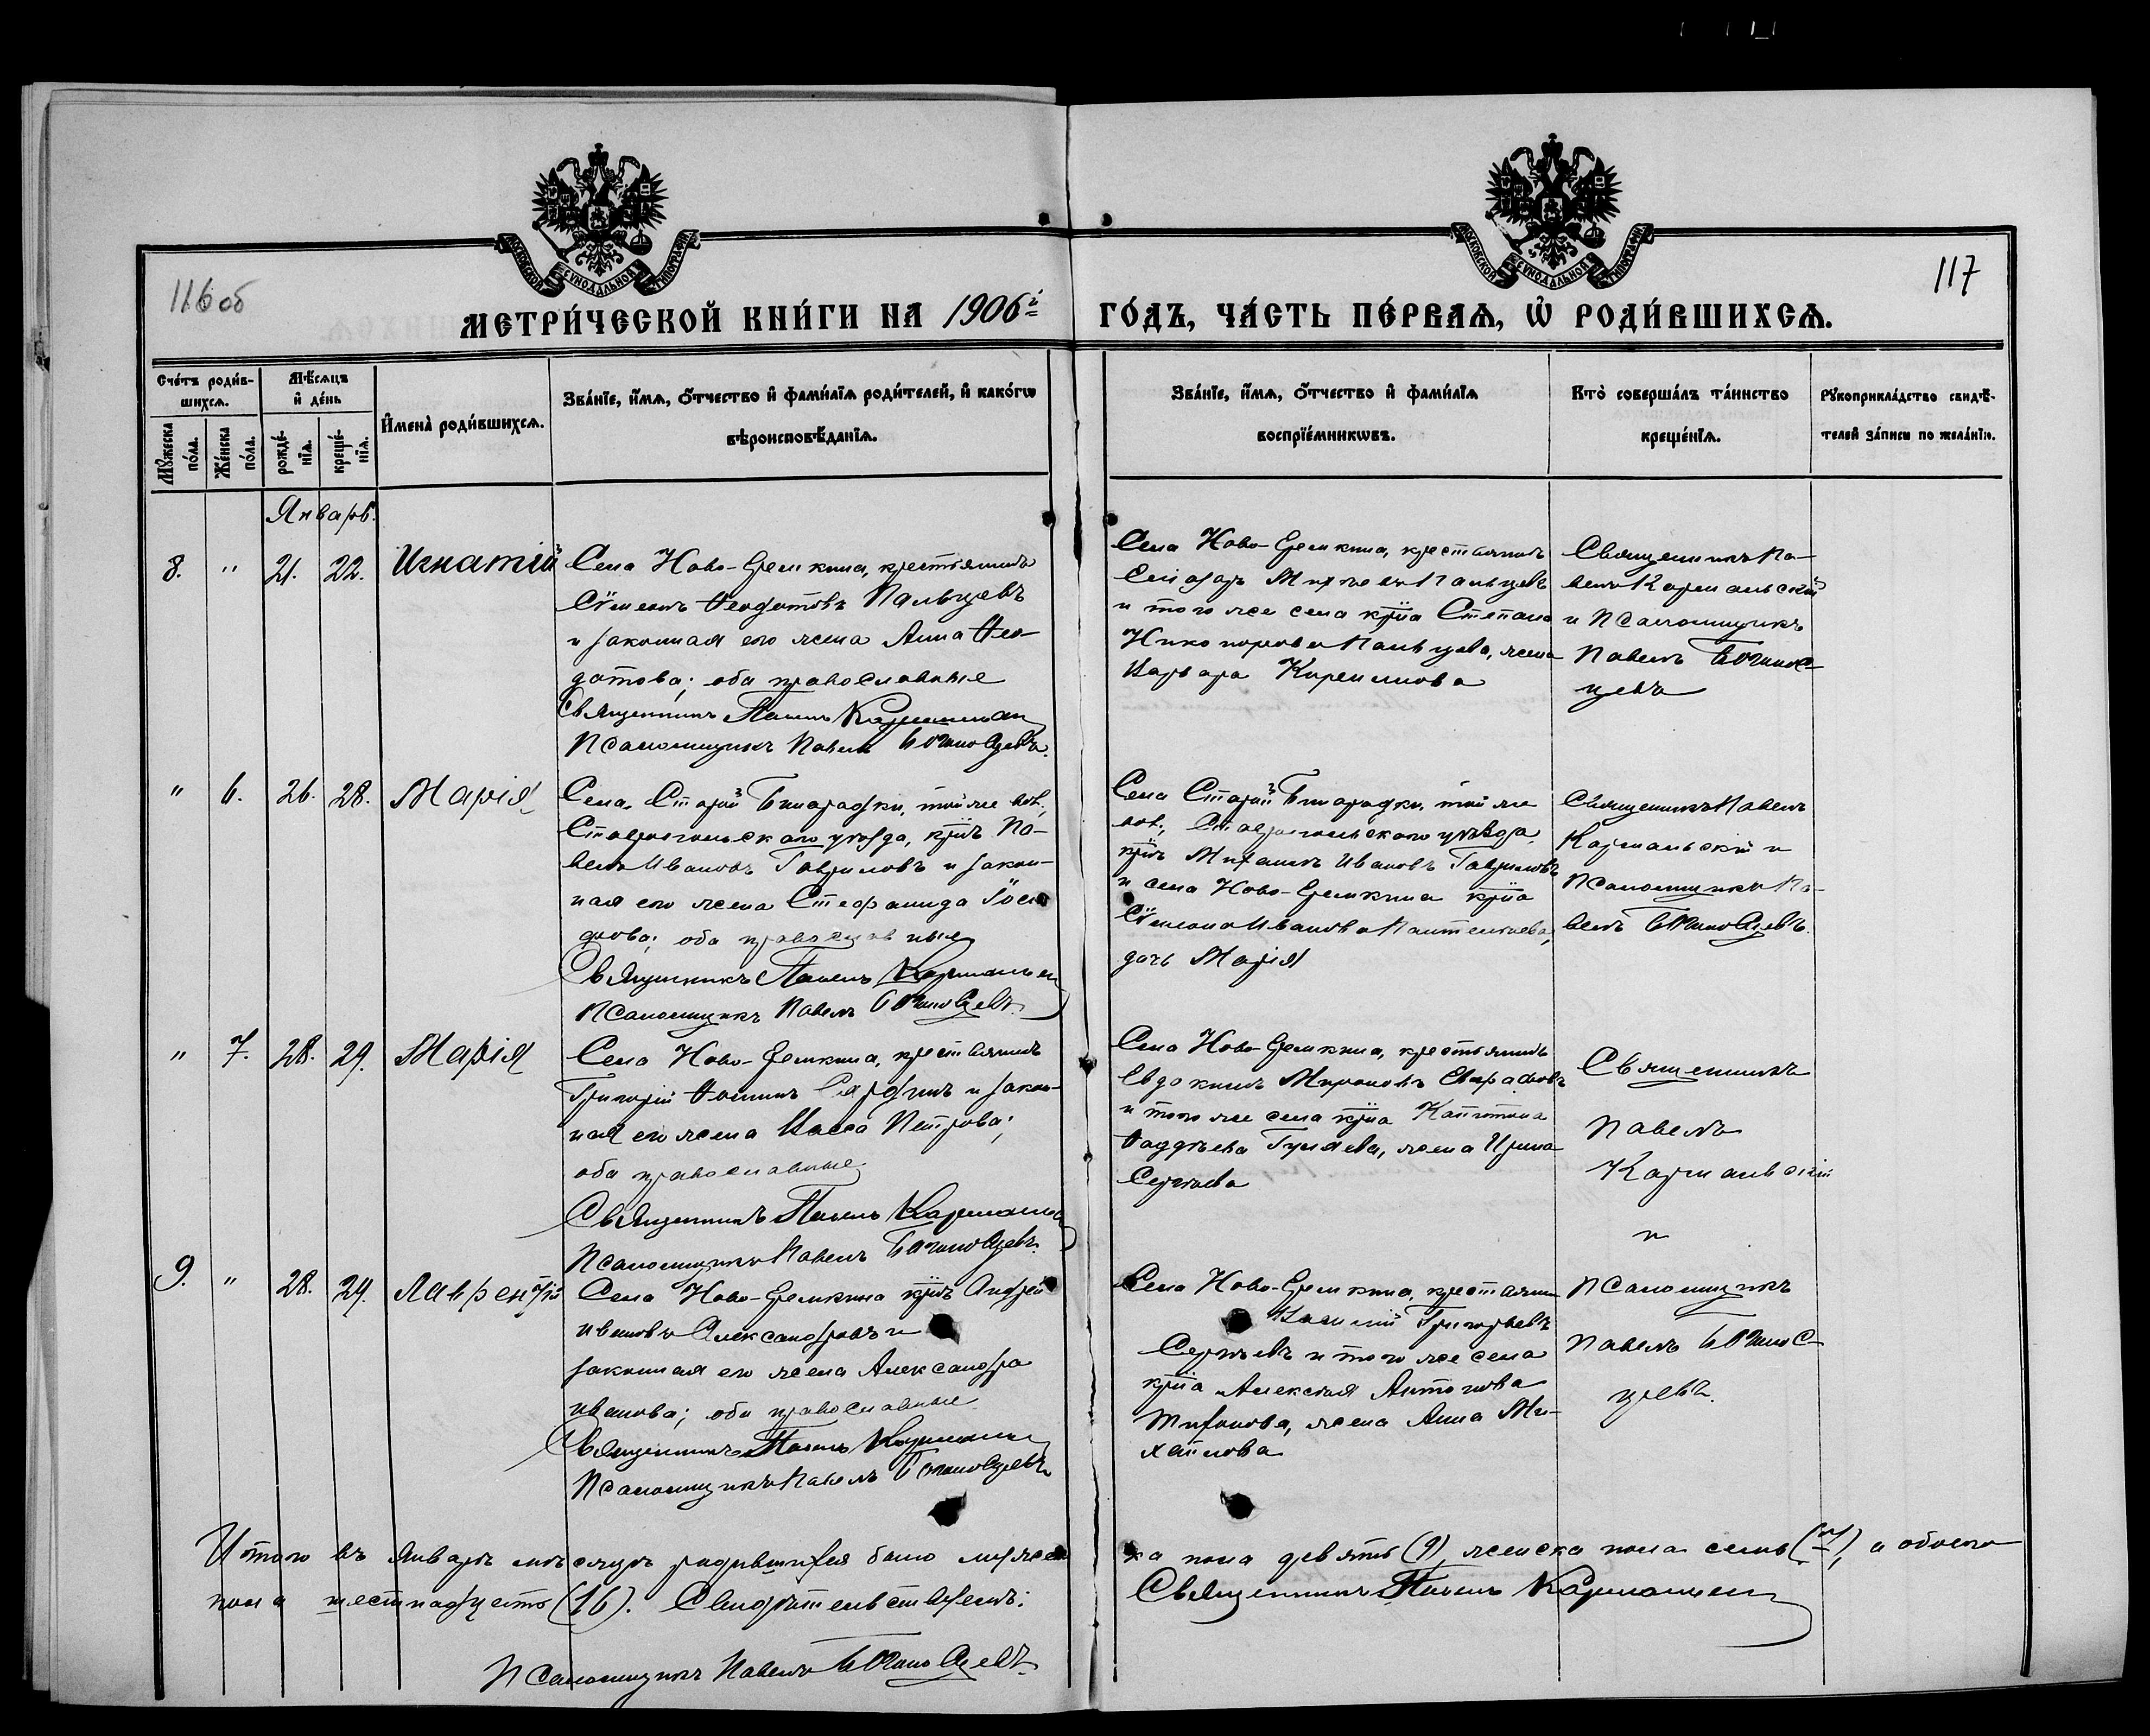 116 об
117
МОСКОВСКОЙ СѴНОДАЛЬНОЙ ТИПОГРАФІИ
МОСКОВСКОЙ СѴНОДАЛЬНОЙ ТИПОГРАФІИ
МЕТРИ́ЧЕСКОЙ КНИ́ГИ НА 1906й
ГО́ДЪ, ЧА́СТЬ ПЕ́РВАѦ, Ѡ РОДИ́ВШИХСѦ.
Сче́тъ роди́в-
шихсѧ.
Мꙋ́жеска
по́ла.
Же́нска
по́ла.
Мѣ́сѧцъ
и҆ де́нь
рожде́-
нїѧ.
креще́-
нїѧ.
И҆мена̀ роди́вшихсѧ.
Зва́нїе, и҆́мѧ, ѻ҆́тчество и҆ фами́лїѧ роди́телей, и҆ како́гѡ
вѣроисповѣ́данїѧ.
Зва́нїе, и҆́мѧ, ѻ҆́тчество и҆ фами́лїѧ
воспрїе́мникѡвъ.
Кто̀ соверша́лъ та́инство
креще́нїѧ.
Рꙋкоприкла́дство свидѣ́-
телей за́писи по жела́нїю.
Январь.
8. " 21. 22. Игнатій
Села Ново-Еремкина, крестьянинъ
Сѵмеонъ Ѳеодотовъ Пальцевъ
и законная его жена Анна Ѳео-
дотова; оба православные
Священникъ Павелъ
Псаломщикъ Павелъ
Села Ново-Еремкина, крестьянинъ
Пальцевъ
и того же села кр҃на Степана
Никонорова Пальцева, жена
Варвара Кириллова
Священникъ Па-
велъ Кармальскій
и Псаломщикъ
Павелъ
цевъ
" 6. 26. 28. Марія
Села Старой Бинарадки, той же вол.,
Ставропольскаго уѣзда, кр҃нъ Па-
велъ Ивановъ Гавриловъ и закон-
ная его жена Стефанида Іоси-
фова; оба православные
Священникъ Павелъ
Псаломщикъ Павелъ
Села Старой Бинарадки, той же
вол., Ставропольскаго уѣзда,
кр҃нъ Михаилъ Ивановъ Гавриловъ
и села Ново-Еремкина кр҃на
Сѵмеона Иванова Пантелѣева,
дочь Марія
Священникъ Павелъ
Кармальскій и
Псаломщикъ Па-
велъ
" 7. 28. 29. Марія
Села Ново-Еремкина, крестьянинъ
Григорій Ѳоминъ и закон-
ная его жена Васса Петрова;
оба православные
Священникъ Павелъ
Псаломщикъ Павелъ
Села Ново-Еремкина, крестьянинъ
Евдокимъ Мироновъ
и того же села кр҃на Капитона
Ѳаддѣева Гуляева, жена Ирина
Сергѣева
Священникъ
Павелъ
Кармальскій
и
9. " 28. 29. Лаврентій
Села Ново-Еремкина кр҃нъ Андрей
Ивановъ Александровъ и
законная его жена Александра
Иванова; оба православные
Священникъ Павелъ
Псаломщикъ Павелъ
Села Ново-Еремкина, крестьянинъ
Василій Григорьевъ
Сергѣевъ и того же села
кр҃на Алексѣя Антонова
Тихонова, жена Анна Ми-
хайлова
Псаломщикъ
Павелъ
цевъ.
Итого въ Январѣ мѣсяцѣ родившихся было мужес-
ка пола девять (9), женска пола семь (7), а обоего
пола шестнадцать (16). Свидѣтельствуемъ:
Священникъ Павелъ
Псаломщикъ Павелъ